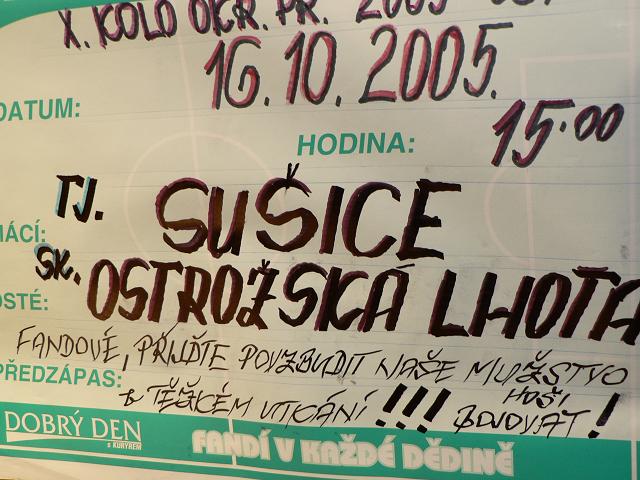 X. KOLO OKR. PŘ. 2005
DATUM: 16.10.2005.
HODINA: 15.00
TJ. SUŠICE
MÁCÍ:
SK. OSTROŽSKÁ LHOTA
OSTÉ:
FANDOVÉ, PŘIJĎTE POVZBUDIT NAŠE MUŽSTVO
PŘEDZÁPAS:
TĚŽKÉM UTKÁNÍ !!! HOŠI BOJOVAT!
DOBRÝ DEN
s KURÝREM
FANDÍ V KAŽDÉ DĚDINĚ